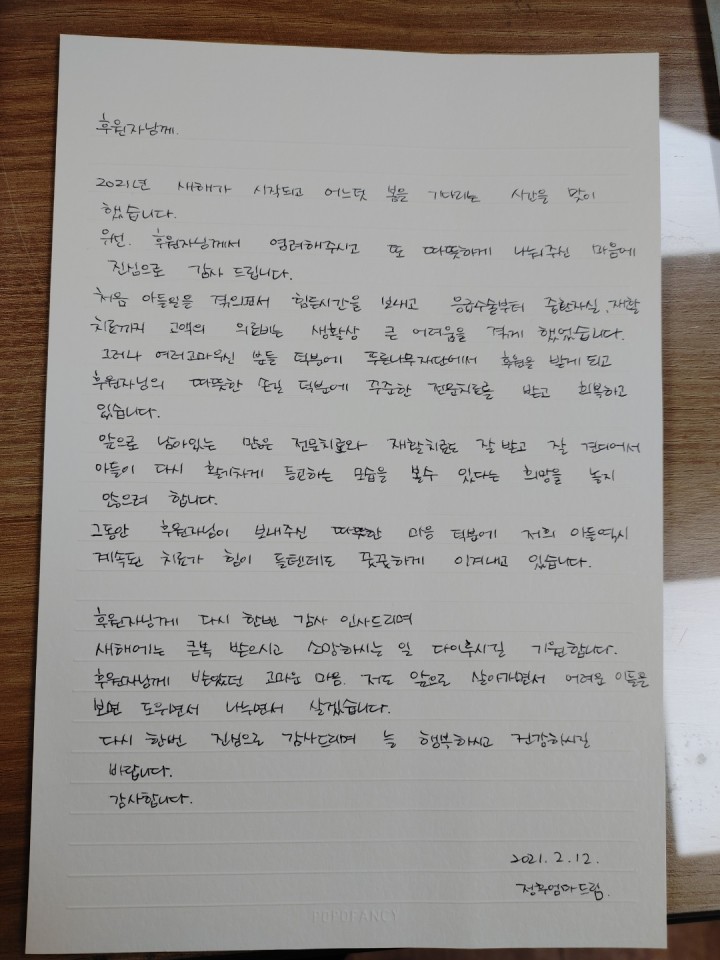 후원자님께.
2021년 새해가 시작되고 어느덧 봄을 기다리는 시간을 맞이
했습니다.
우선. 후원자님께서 염려해주시고 또 따뜻하게 나눠주신 마음에
진심으로 감사 드립니다.
처음 아들일을 겪으면서 힘든시간을 보내고 응급수술부터 중환자실, 재활
치료까지 고액의 의료비는 생활상 큰 어려움을 겪게 했었습니다.
그러나 여러고마우신 분들 덕분에 푸른나무재단에서 후원을 받게 되고
후원자님의 따뜻한 손길 덕분에 꾸준한 전문치료를 받고 회복하고
있습니다.
앞으로 남아있는 많은 전문치료와 재활치료도 잘 받고 잘 견뎌에서
아들이 다시 활기차게 등교하는 모습을 볼수 있다는 희망을 놓지
않으려 합니다.
그동안 후원자님이 보내주신 따뜻한 마음 덕분에 저희 아들역시
계속된 치료가 힘이 들텐데도 꿋꿋하게 이겨내고 있습니다.
후원자님께 다시 한번 감사 인사드리며
새해에는 큰복 받으시고 소망하시는 일 다이루시길 기원합니다.
후원자님께 받았던 고마운 마음. 저도 앞으로 살아가면서 어려운 이들을
보면 도우면서 나누면서 살겠습니다.
다시 한번 진심으로 감사드리며 늘 행복하시고 건강하시길
바랍니다.
감사합니다.
2021. 2. 12.
엄마드림.
POPOFANCY